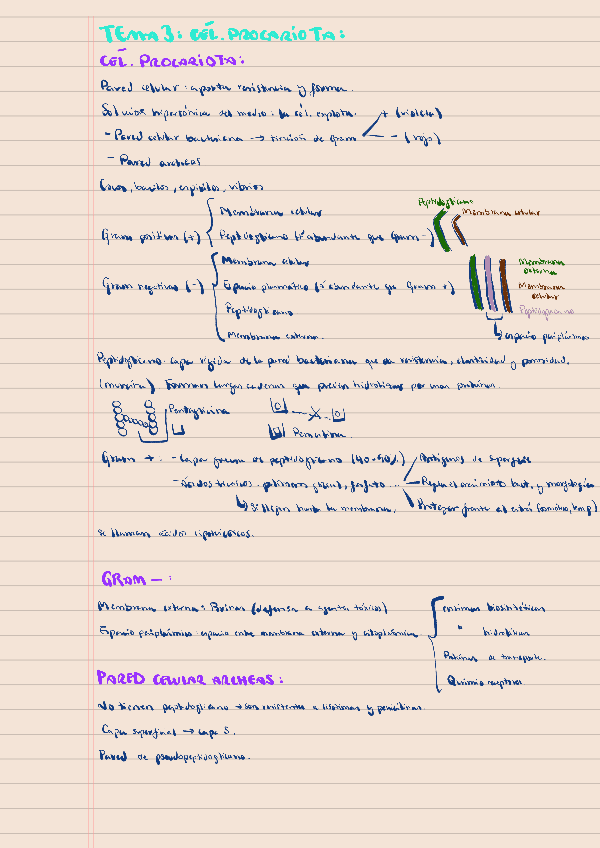 TEMA 3: CÉL. PROCARIOTA:
CÉL. PROCARIOTA:
Pared celular: aporta resistencia y forma.
Solución hipersónica del medio: la cél. explota.
- Pared celular bacteriana → tinción de Gram
+ (violeta)
- (rojo)
- Pared archeas
Cocos, bacilos, espirilos, vibrios
Gram positivas (+)
Membrana celular
Peptidoglicano (+ abundante que Gram -)
Gram negativas (-)
Membrana celular
Espacio plasmático (+ abundante que Gram +)
Peptidoglicano
Membrana externa.
Peptidoglicano
Membrana celular
Membrana externa
Membrana celular
Peptidoglicano
espacio periplásmico
Peptidoglicano: capa rígida de la pared bacteriana que da resistencia, elasticidad y porosidad.
(mureína). Forman largas cadenas que
por unas proteínas.
Pentaglicina
Penicilina.
Gram +: - Capa gruesa de peptidoglicano (40-90%)
- ácidos teicoicos: polímeros glicerol, fosfato ...
Antígenos de superficie
Regula el crecimiento bact. y morfología
Proteger frente al
Si llegan hasta la membrana,
se llaman ácidos lipoteicoicos.
GRAM - :
Membrana externa: Porinas (defensa a agentes tóxicos)
Espacio periplásmico: espacio entre membrana externa y citoplasmática
enzimas biosintéticas
" hidrolíticas
Proteínas de transporte.
Quimiorreceptores
PARED CELULAR ARCHEAS:
No tienen peptidoglicano → son resistentes a lisozimas y penicilinas.
Capa superficial → capa S.
Pared de pseudopeptidoglicano.